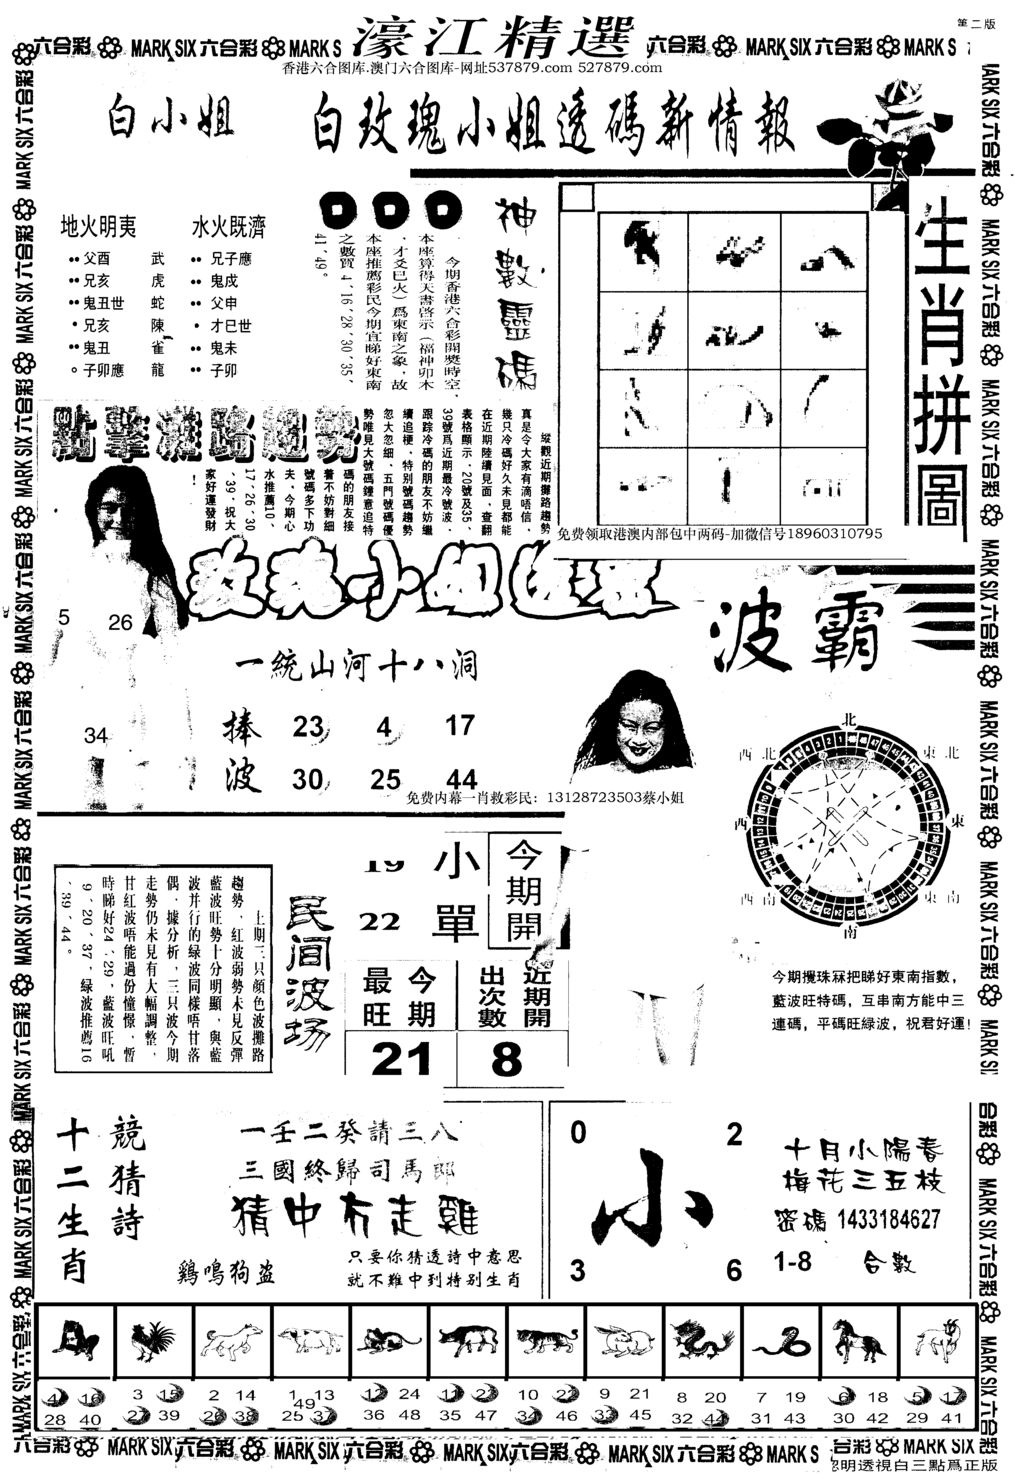 第二版
六合彩 MARK SIX 六合彩 MARK S
濠江精選
六合彩 MARK SIX 六合彩 MARK S
香港六合图库.澳门六合图库-网址537879.com 527879.com
白小姐
白玫瑰小姐透碼新情報
地火明夷
父酉 武
兄亥 虎
鬼丑世 蛇
兄亥 陳
鬼丑 雀
子卯應 龍
水火既濟
兄子應
鬼戌
父申
才巳世
鬼未
子卯
神數靈碼
今期香港六合彩開獎時空，
本座算得天書啓示（福神卯木
，才爻巳火）爲東南之象，故
本座推薦彩民今期宜睇好東南
之數買4、16、28、30、35、
41、49。
生肖拼圖
點擊攤路趨勢
縱觀近期攤路趨勢
真是令大家有滴唔信，
幾只冷碼好久未見都能
在近期陸續見面，查翻
表格顯示，20號及35、
39號爲近期最冷號波，
跟踪冷碼的朋友不妨繼
續追梗，特別號碼趨勢
忽大忽細，五門號碼優
勢唯見大號碼鍾意追特
碼的朋友接
着不妨對細
號碼多下功
夫，今期心
水推薦10、
17、26、30
、39，祝大
家好運發財
！
免费领取港澳内部包中两码-加微信号18960310795
玫瑰小姐
波霸
5
26
34
一統山河十八洞
捧波
23 4 17
30 25 44
免费内幕一肖救彩民：13128723503蔡小姐
北
西北 東北
西 東
西南 東南
南
今期攪珠冧把睇好東南指數，
藍波旺特碼，互串南方能中三
連碼，平碼旺緑波，祝君好運！
民间波场
上期三只顔色波攤路
趨勢，紅波弱勢未見反彈
藍波旺勢十分明顯，與藍
波并行的绿波同樣唔甘落
偶，據分析，三只波今期
走勢仍未見有大幅調整，
甘紅波唔能過份憧憬，暫
時睇好24、29，藍波旺吼
9、20、37，绿波推薦16
、39、44。
19 小
22 單
今期開
今期最旺
近期開出次數
21
8
競猜詩
十二生肖
一壬二癸請三八
三國終歸司馬郎
猜中冇走雞
鷄鳴狗盗
只要你猜透詩中意思
就不難中到特别生肖
0 2
小
3 6
十月小陽春
梅花三五枝
密碼 1433184627
1-8 合數
4 16
28 40
3 15
27 39
2 14
26 38
1 13
49
25 37
12 24
36 48
11 23
35 47
10 22
34 46
9 21
33 45
8 20
32 44
7 19
31 43
6 18
30 42
5 17
29 41
六合彩 MARK SIX 六合彩 MARK SIX 六合彩 MARK SIX 六合彩 MARK SIX 六合彩 MARK S 六合彩 MARK SIX
聰明透視白三點爲正版